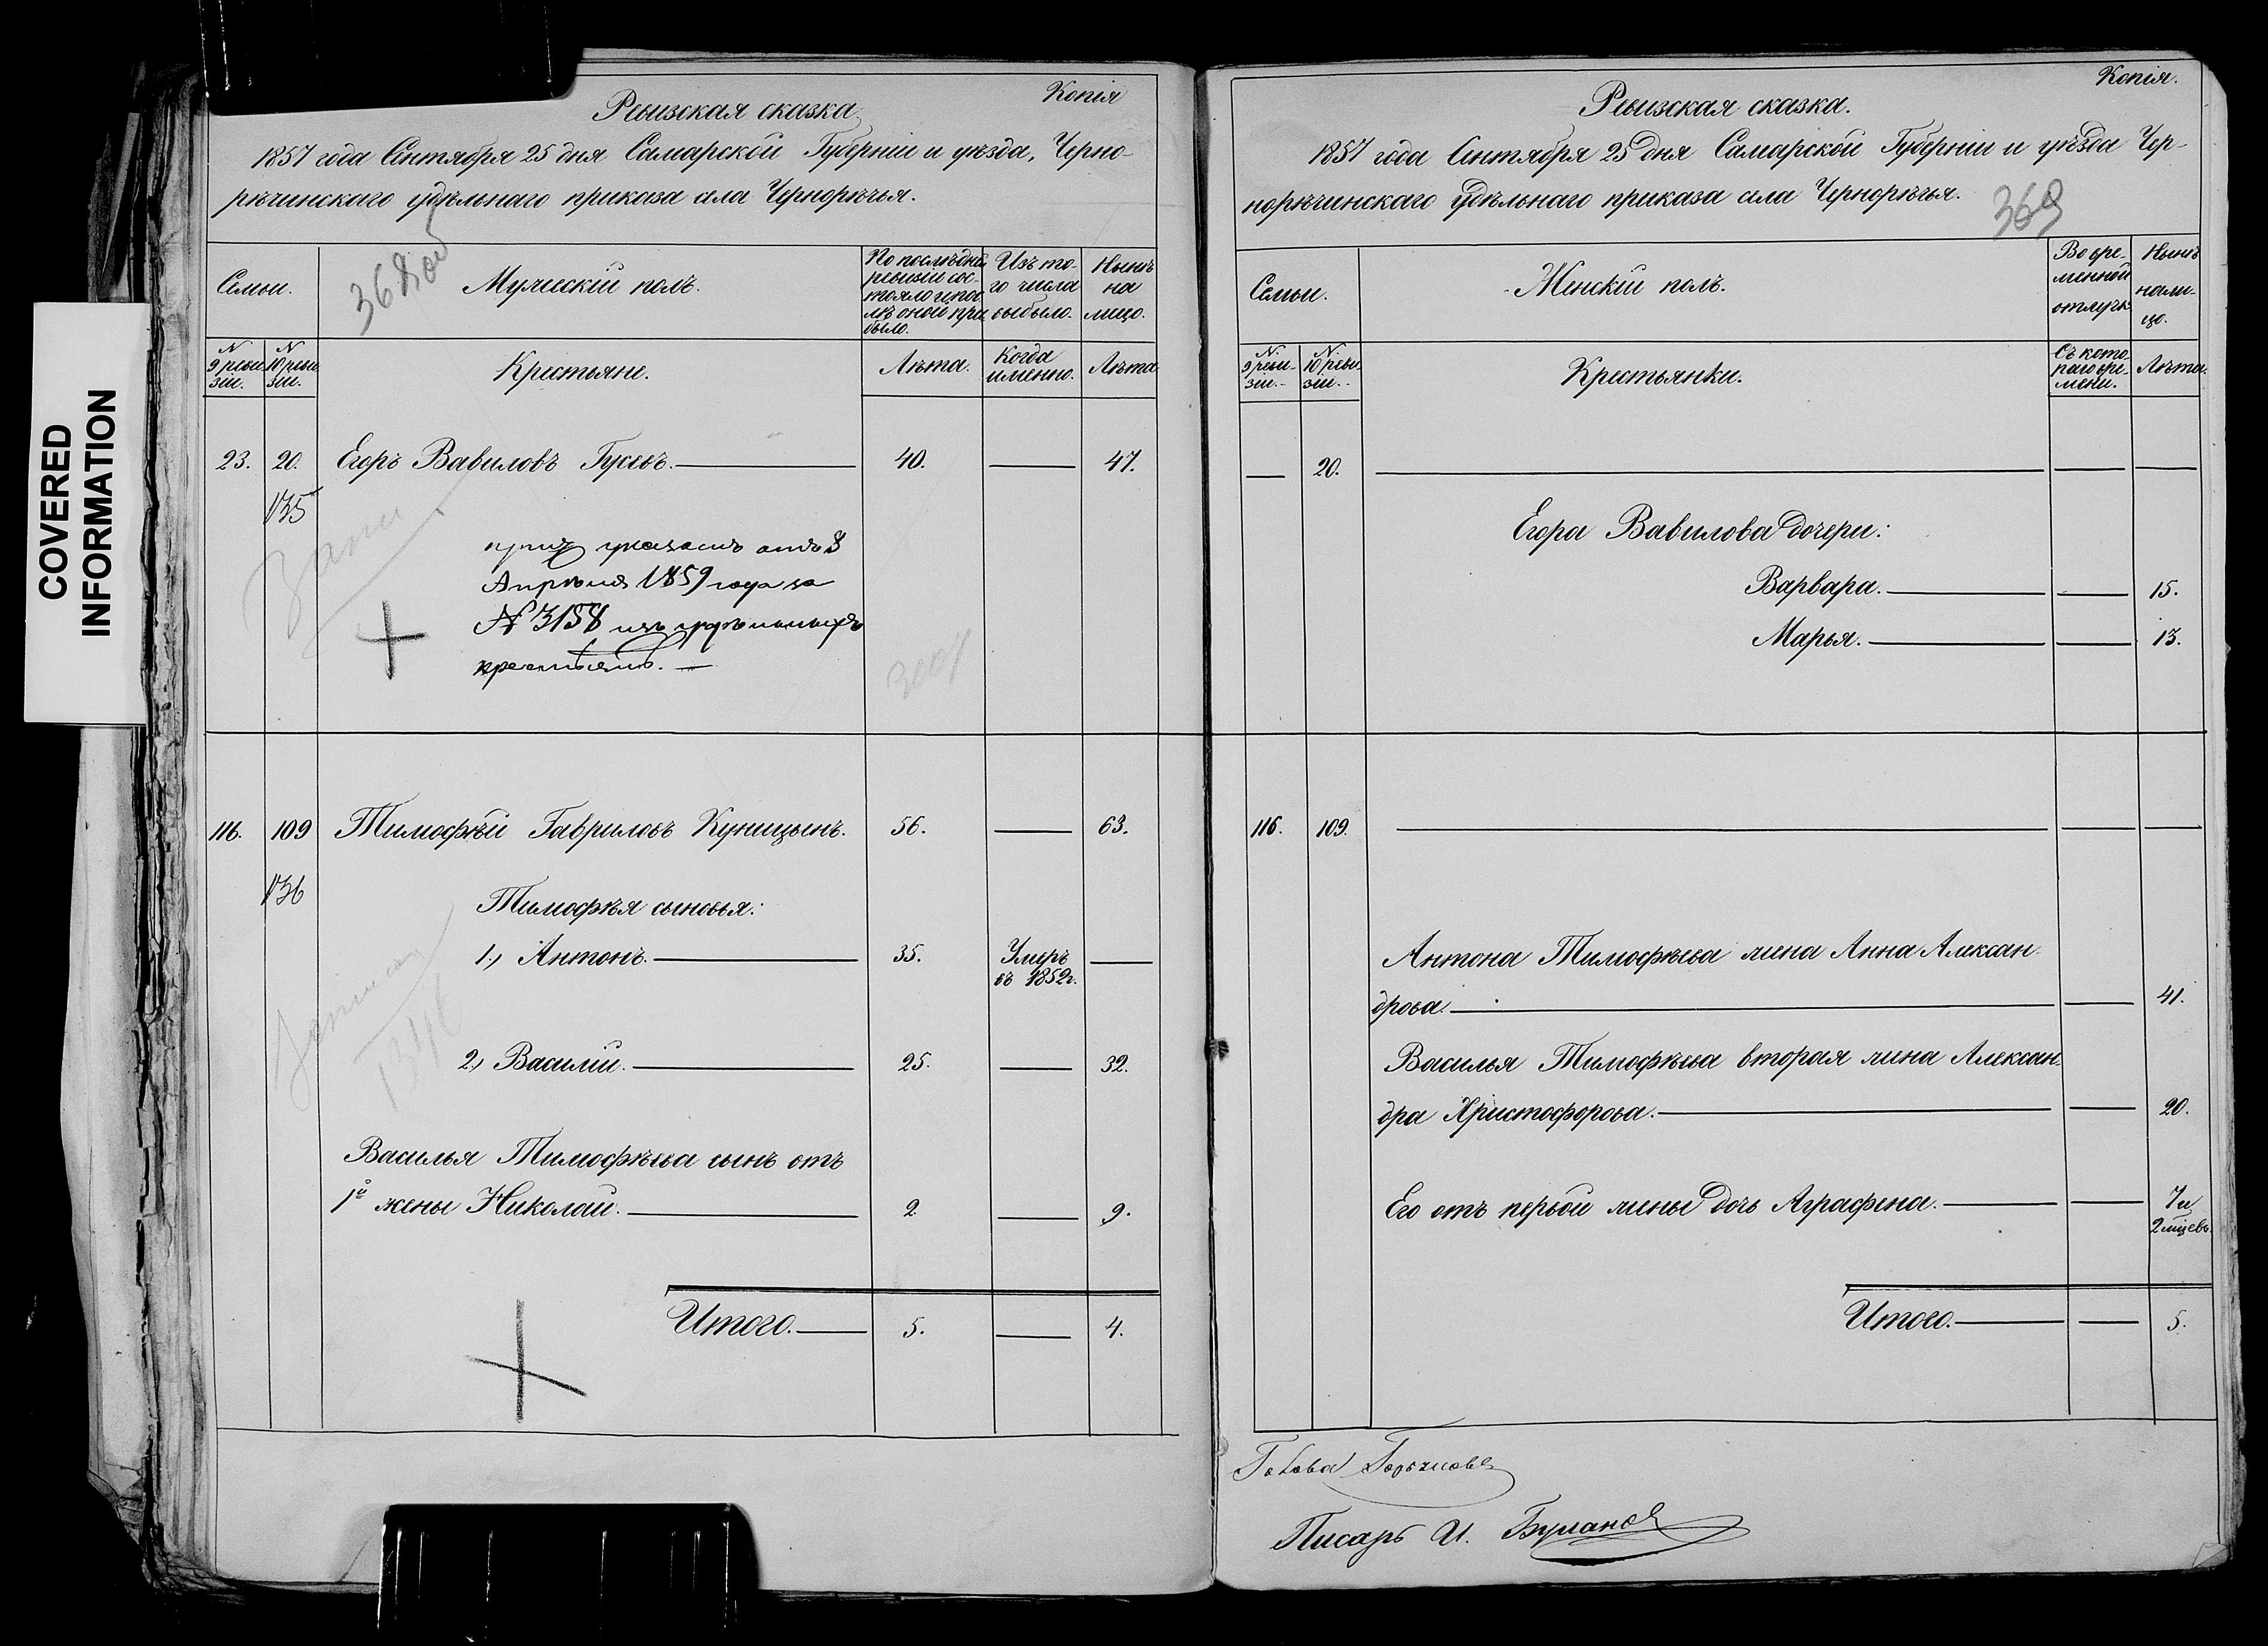 COVERED
INFORMATION
Копія
Ревизская сказка
1857 года Сентября 25 дня Самарской Губерніи и уѣзда, Черно-
рѣчинскаго удѣльнаго приказа села Чернорѣчья.
368 об
Семьи.
Мужескій полъ.
По послѣдней
ревизіи сос-
тояло и пос-
лѣ оной при
было.
Изъ то-
го числа
выбыло.
Нынѣ
на
лицо.
N
9 реви
зіи.
N
10 реви
зіи.
Крестьяне.
Лѣта.
Когда
именно.
Лѣта
23. 20. Егоръ Вавиловъ Гусевъ. 40. 47.
135
указомъ отъ 8
Апрѣля 1859 года за
№ 3158 изъ
крестьянъ.
116. 109 Тимофѣй Гавриловъ Куницынъ. 56. 63.
136
Тимофѣя сыновья:
1, Антонъ. 35. Умеръ
въ 1852г.
2, Василій. 25. 32.
Василья Тимофѣева сынъ отъ
1й жены Николай. 2. 9.
Итого. 5. 4.
Копія.
Ревизская сказка.
1857 года Сентября 25 дня Самарской Губерніи и уѣзда Чер-
норѣчинскаго Удѣльнаго приказа села Чернорѣчья.
369
Семьи.
Женскій полъ.
Во вре-
менной
отлучкѣ
Нынѣ
нали-
цо.
N.
9 реви-
зіи.
N.
10 реви
зіи.
Крестьянки.
Съ кото
раго вре-
мени.
Лѣта.
20.
Егора Вавилова дочери:
Варвара. 15.
Марья. 13.
116. 109.
Антона Тимофѣева жена Анна Алексан-
дрова. 41.
Василья Тимофѣева вторая жена Алексан-
дра Христофорова. 20.
Его отъ первой жены дочь Аграфена. 7 и
2 мѣсцевъ.
Итого. 5.
Голова
Писарь И.